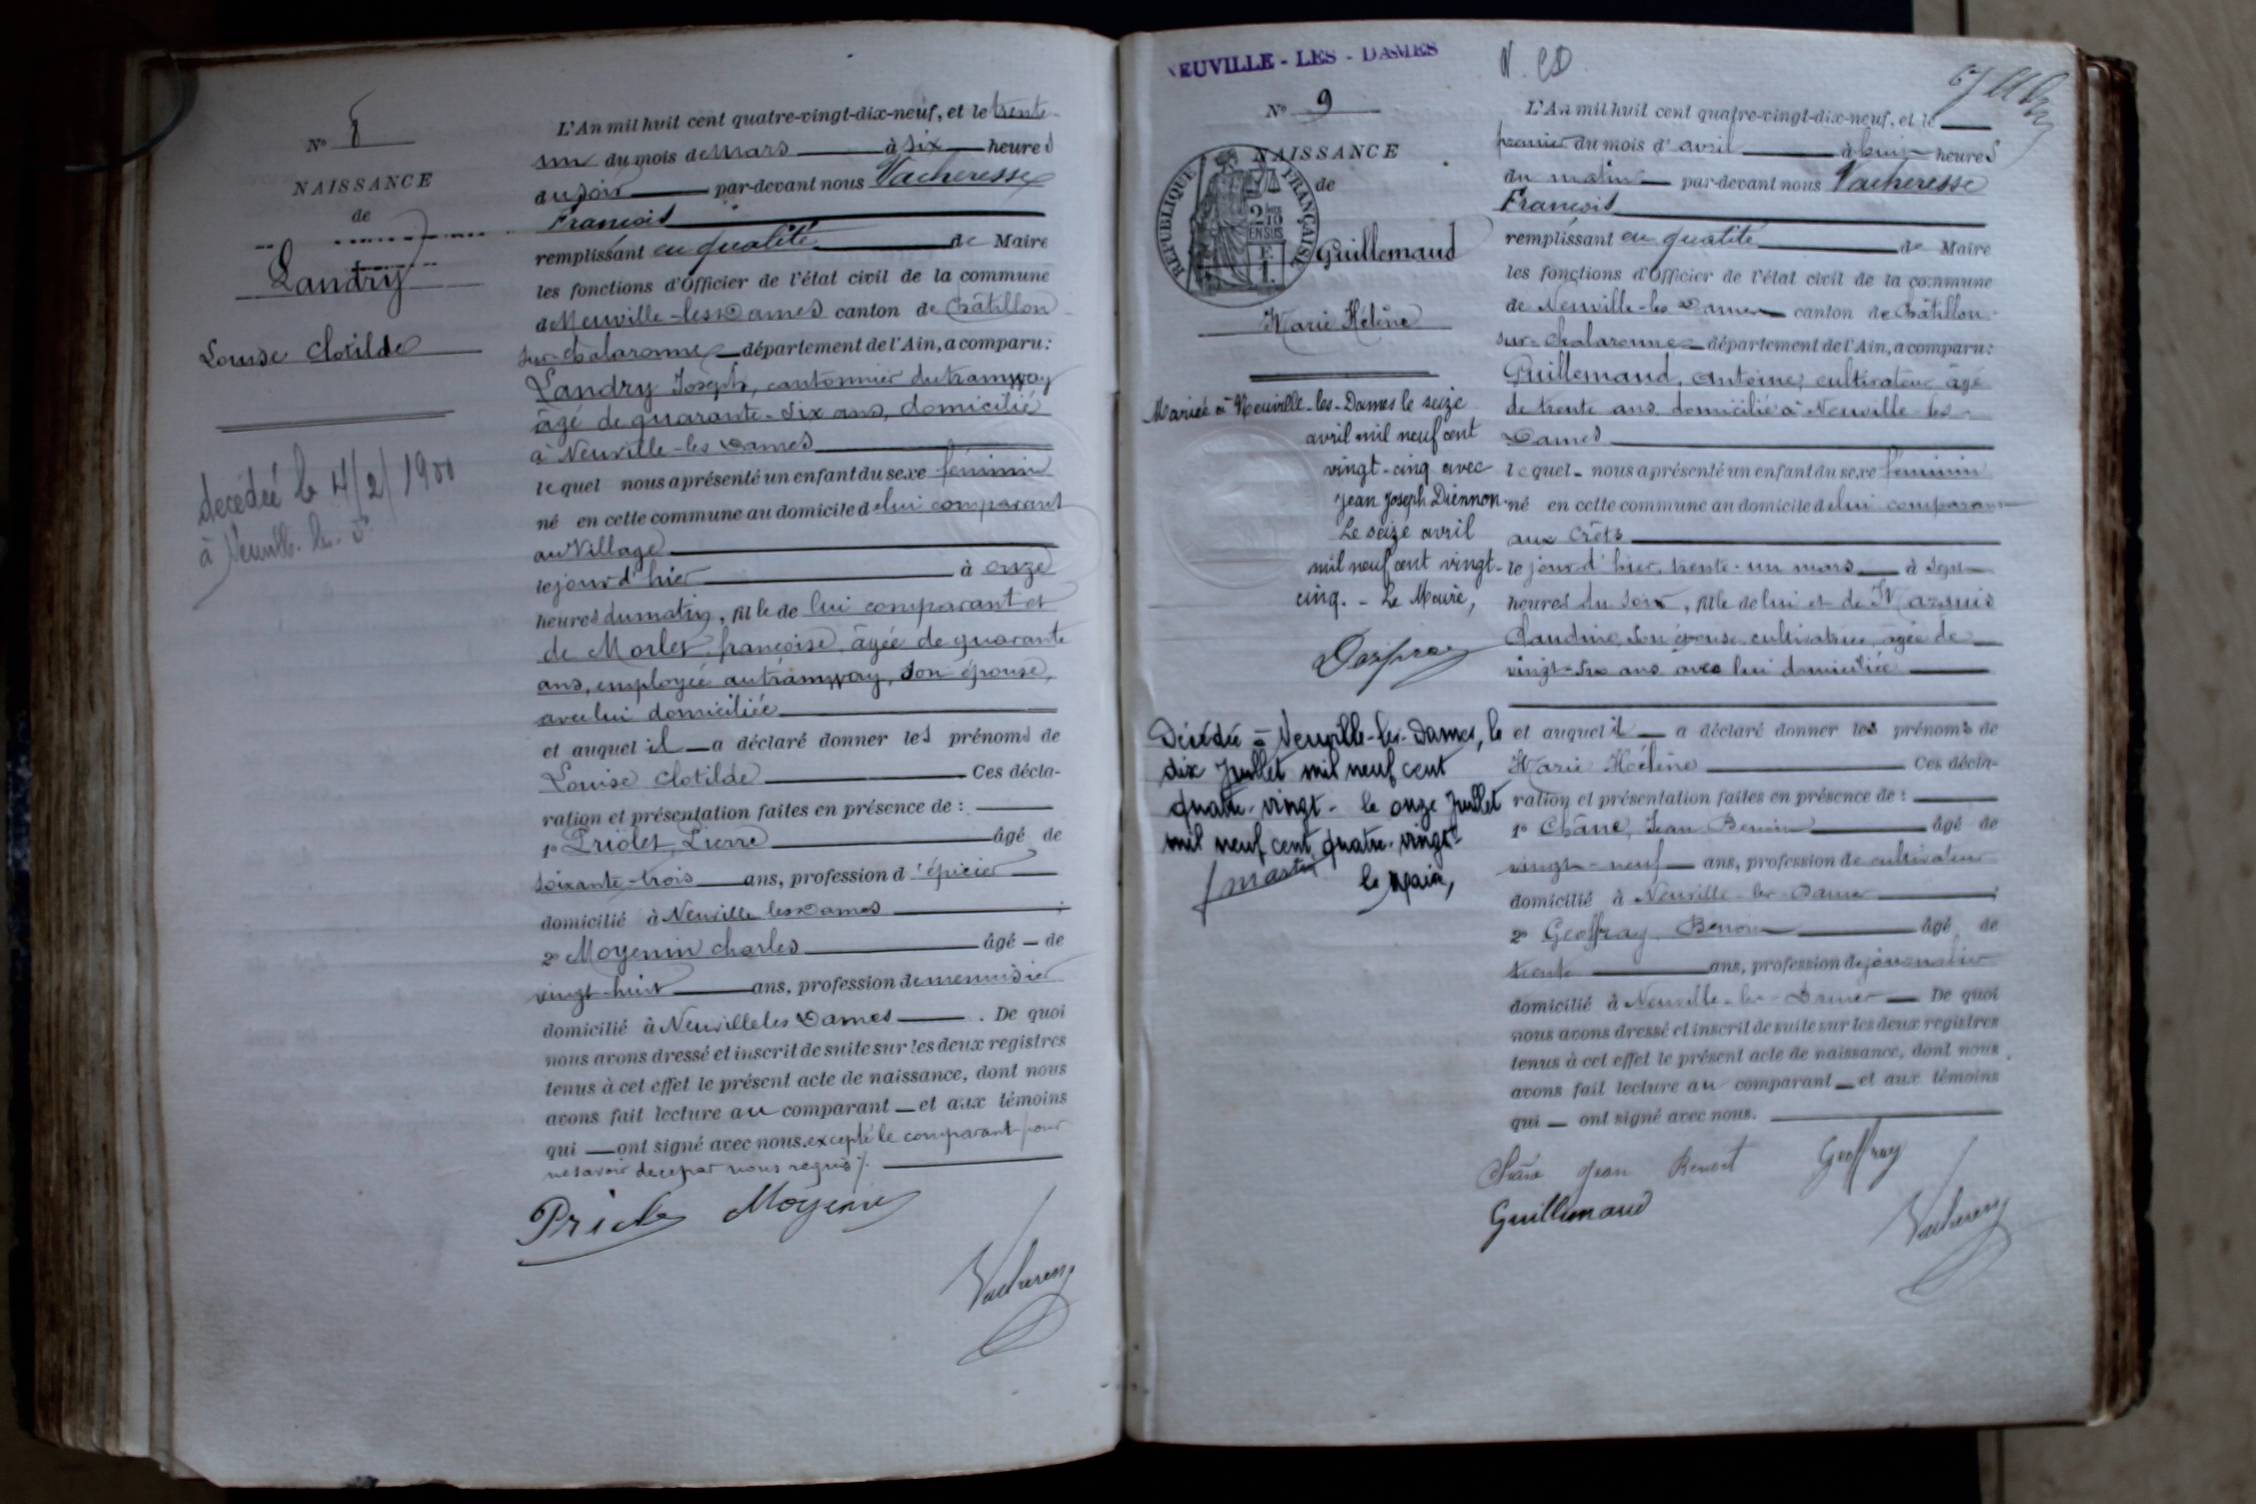 N° 8
NAISSANCE
de
Landry
Louise Clotilde
décédée le 4/2/1900
à Neuville-les-D.
L'An mil huit cent quatre-vingt-dix-neuf, et le trente-
un du mois de Mars à six heures
du soir par-devant nous Vacheresse
François
remplissant en qualité de Maire
les fonctions d'Officier de l'état civil de la commune
de Neuville-les-Dames canton de Châtillon
sur-Chalaronne département de l'Ain, a comparu:
Landry Joseph, cantonnier du tramway
âgé de quarante-six ans, domicilié
à Neuville-les Dames
lequel nous a présenté un enfant du sexe féminin
né en cette commune au domicile de lui comparant
au Village
le jour d'hier à onze
heures du matin, fille de lui comparant et
de Morlet françoise, âgée de quarante
ans, employée au tramway, son épouse,
avec lui domiciliée
et auquel il a déclaré donner les prénoms de
Louise Clotilde Ces décla-
ration et présentation faites en présence de :
1° Priolet, Pierre âgé de
soixante-trois ans, profession d'épicier
domicilié à Neuville les Dames ;
2° Moyenin Charles âgé de
vingt-huit ans, profession de menuisier
domicilié à Neuville les Dames . De quoi
nous avons dressé et inscrit de suite sur les deux registres
tenus à cet effet le présent acte de naissance, dont nous
avons fait lecture au comparant et aux témoins
qui ont signé avec nous. excepté le comparant pour
ne savoir de ce par nous requis ./.
Moyenin
Vacheresse
NEUVILLE - LES - DAMES
N° 9
NAISSANCE
de
RÉPUBLIQUE FRANÇAISE
2/10 EN SUS
Guillemaud
Marie Hélène
Mariée à Neuville-les-Dames le seize
avril mil neuf cent
vingt-cinq avec
Jean Joseph Diennon.
Le seize avril
mil neuf cent vingt-
cinq. - Le Maire,
Décédée à Neuville-les-Dames, le
dix Juillet mil neuf cent
quatre-vingt - le onze Juillet
mil neuf cent quatre-vingt
le Maire,
L'An mil huit cent quatre-vingt-dix-neuf, et le
premier du mois d'avril à huit heures
du matin par-devant nous Vacheresse
François
remplissant en qualité de Maire
les fonctions d'Officier de l'état civil de la commune
de Neuville-les Dames canton de Châtillon-
sur-Chalaronne département de l'Ain, a comparu:
Guillemaud, Antoine, cultivateur âgé
de trente ans domicilié à Neuville-les-
Dames
lequel nous a présenté un enfant du sexe féminin
né en cette commune au domicile de lui comparant
aux Crêts
le jour d'hier, trente-un mars à sept
heures du soir, fille de lui et de
Claudine, son épouse, cultivatrice, âgée de
vingt-six ans avec lui domiciliée
et auquel il a déclaré donner les prénoms de
Marie Hélène Ces décla-
ration et présentation faites en présence de :
1° Châne, Jean Benoit âgé de
vingt-neuf ans, profession de cultivateur
domicilié à Neuville-les-Dames ;
2° Geoffray, Benoit âgé de
trente ans, profession de journalier
domicilié à Neuville-les-Dames De quoi
nous avons dressé et inscrit de suite sur les deux registres
tenus à cet effet le présent acte de naissance, dont nous
avons fait lecture au comparant et aux témoins
qui ont signé avec nous.
Jean Benoit Geoffray
Guillemaud
Vacheresse